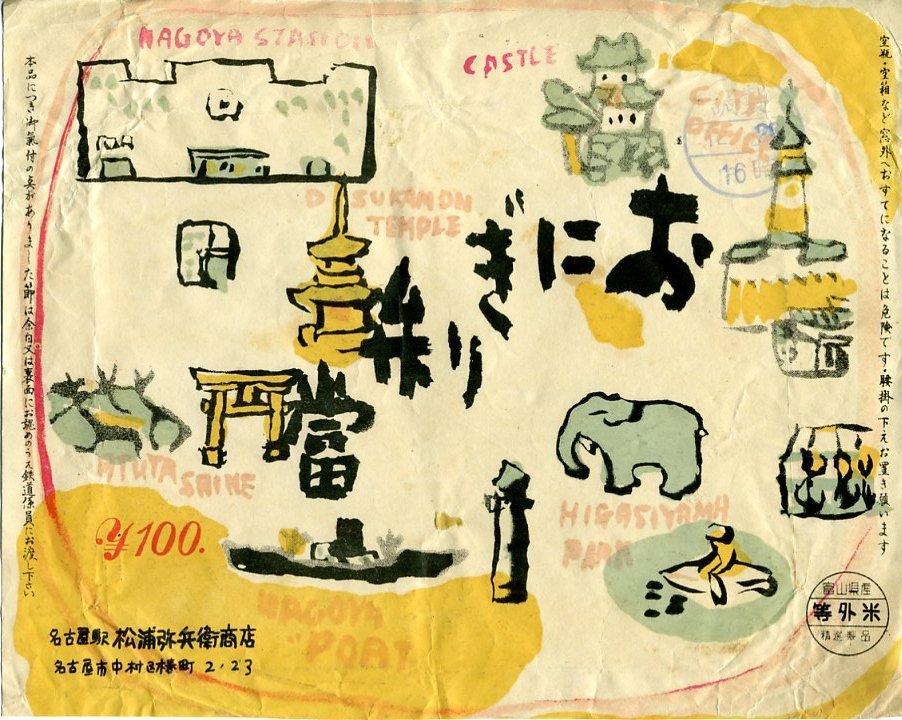 NAGOYA STATION
CASTLE
CITY OFFICE
16時
空瓶・空箱など窓外へおすてになることは危険です・腰掛の下えお置き願います
おにぎり
辨當
DISUKANON
TEMPLE
ATUTA
SHINE
HIGASIYAMA
PARK
NAGOYA
POAT
¥100.
本品につき御氣付の点がありました節は余白又は裏面にお認めのうえ鉄道係員にお渡し下さい
名古屋駅 松浦弥兵衛商店
名古屋市中村区椿町 2・23
富山県産
等外米
精選製品